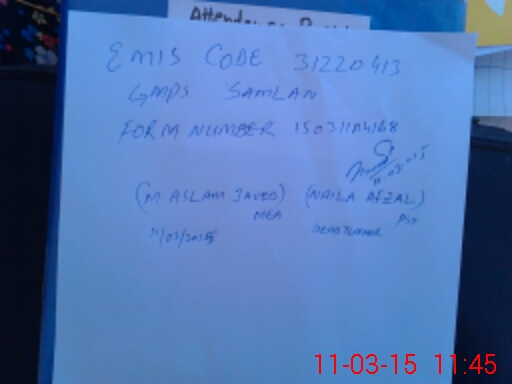 Attendance
EMIS CODE 31220413
GMPS SAMLAN
FORM NUMBER 15031104168
11-03-15
(M. ASLAM JAVED) (NAILA AFZAL)
MEA PST
11/03/2015 HEADTEACHER
11-03-15 11:45